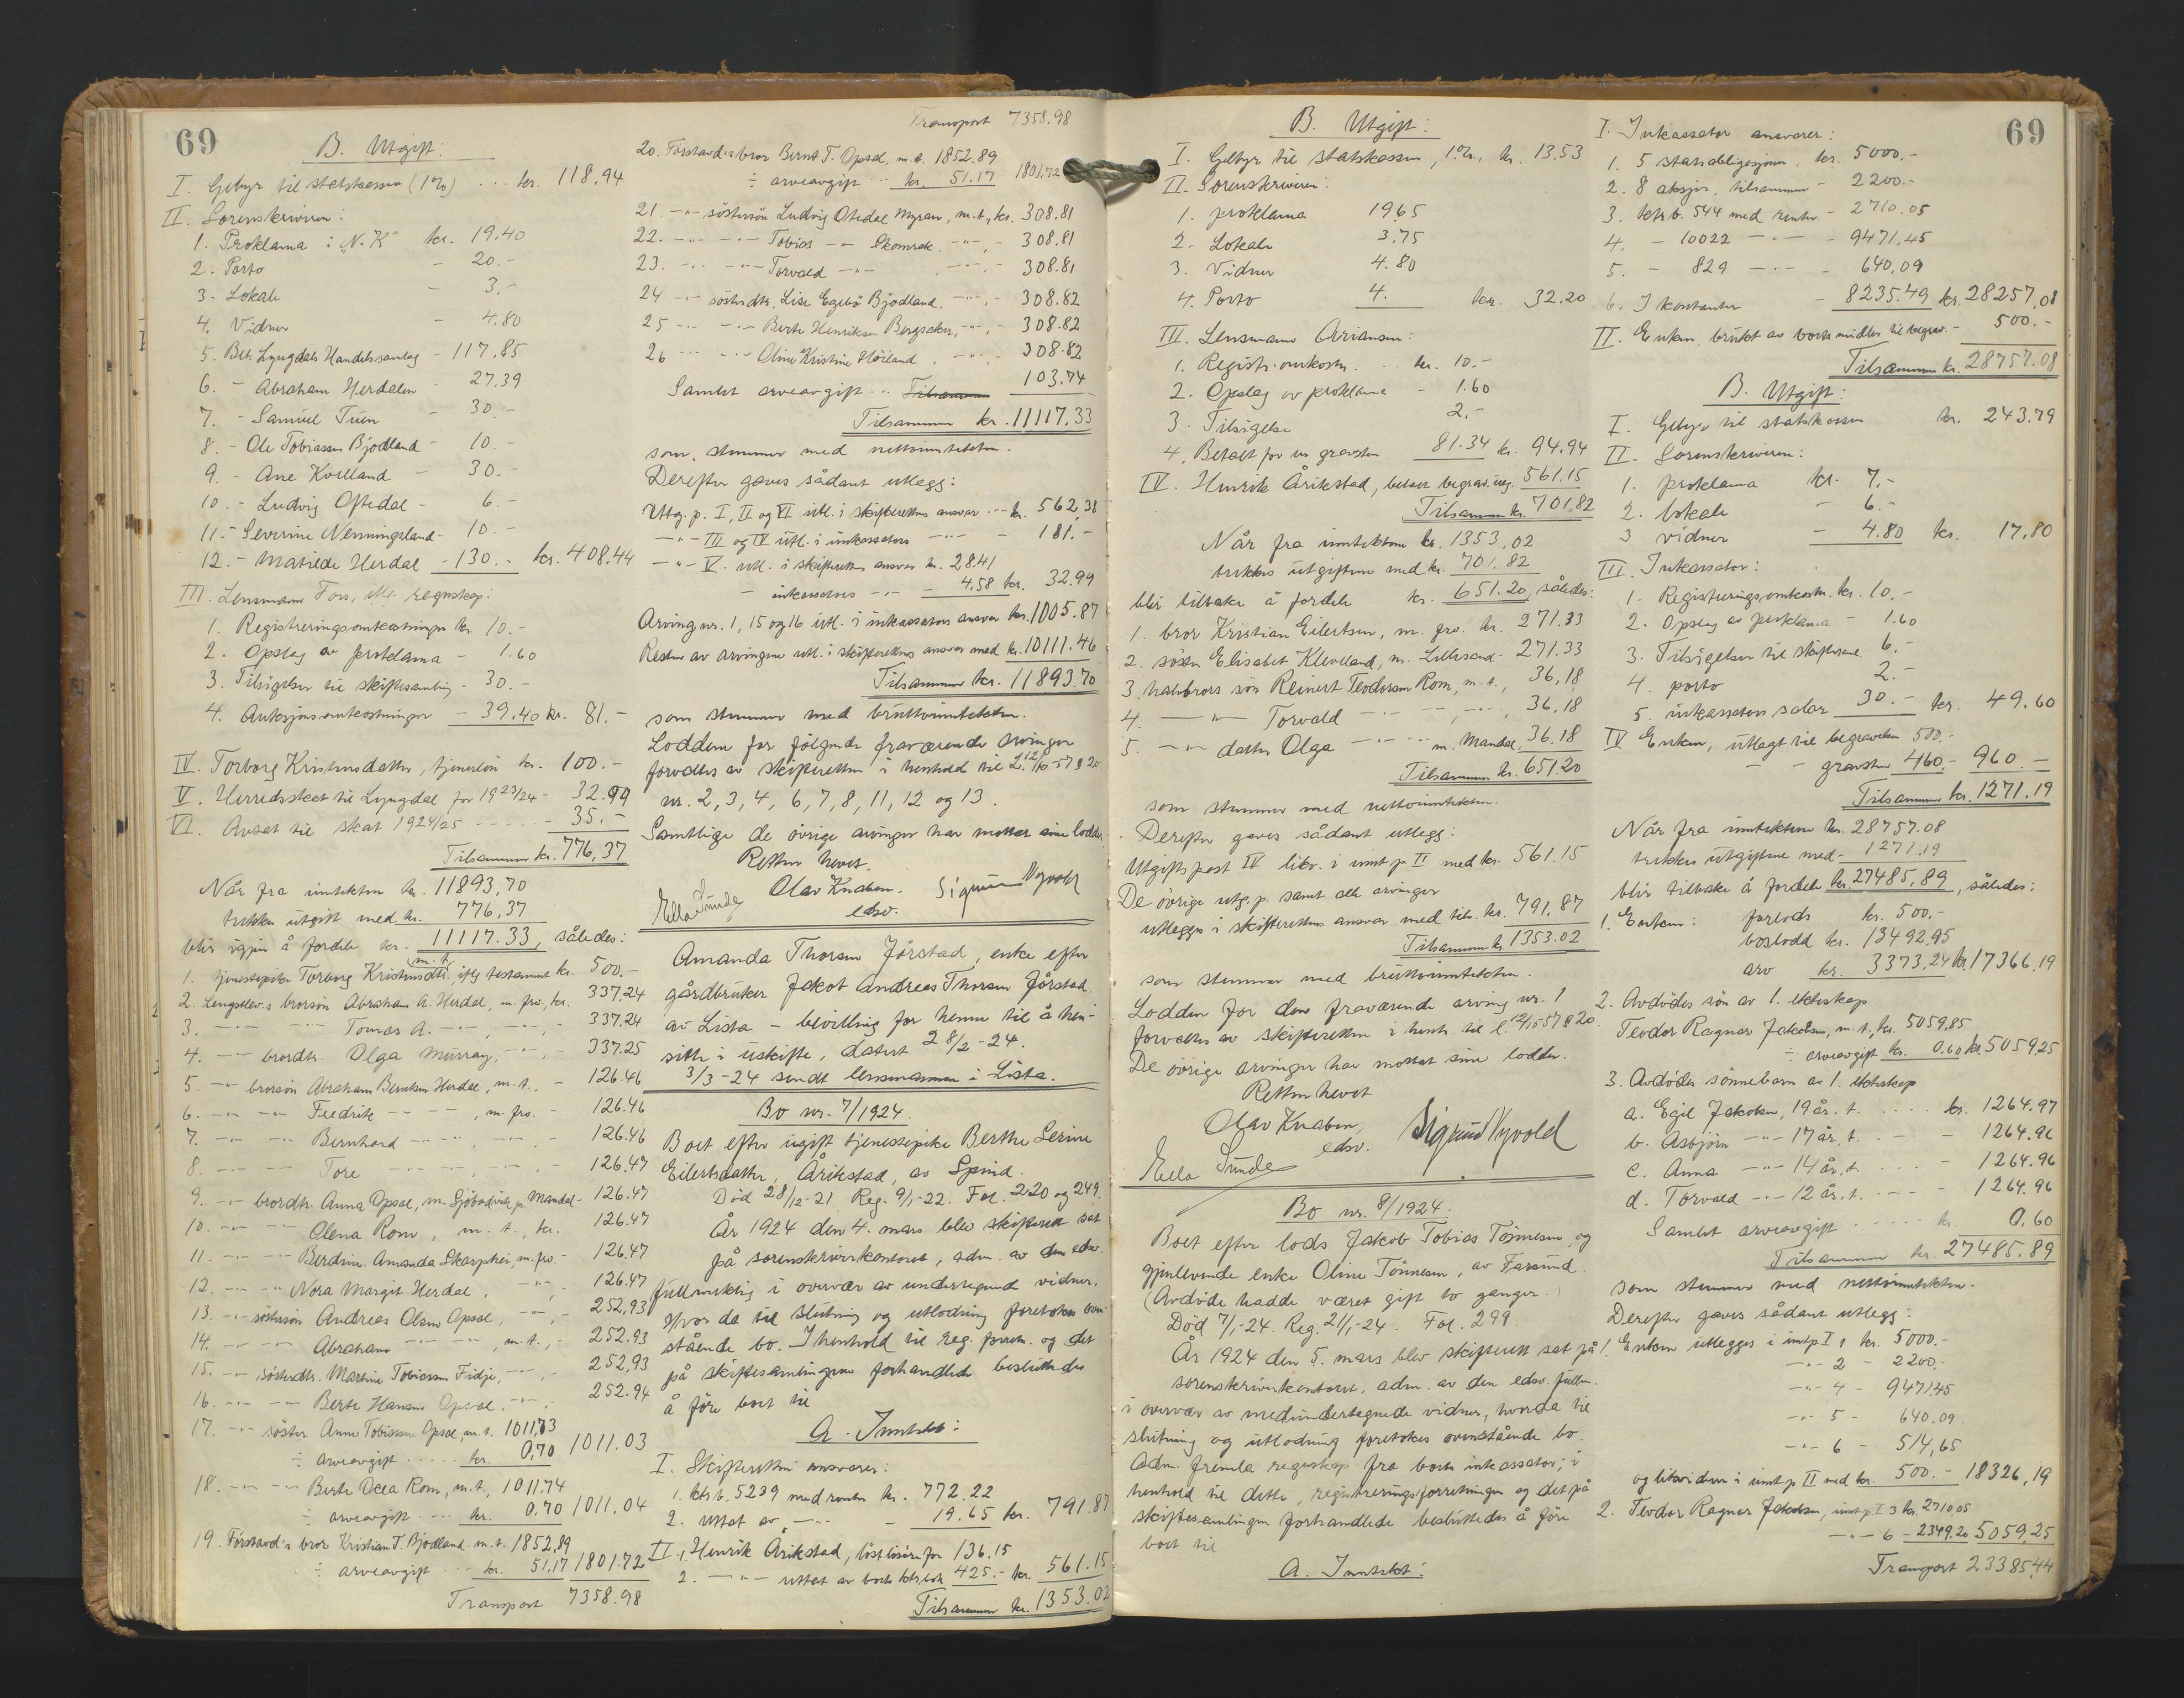 69
B. Utgift:
I. Gebyr til statskassen (1%) ... kr. 118,94
II. Sorenskriveren:
1. Proklama i "N.K" kr. 19.40
2. Porto - 20.-
3. Lokale - 3.-
4. Vidner - 4.80
5. Bet. Lyngdals Handelssamlag - 117,85
6. - Abraham Herdalen - 27.39
7. - Samuel Tuen - 30.-
8. - Ole Tobiassen Bjodland - 10.-
9. - Ane Kvelland - 30.-
10. - Ludvig Oftedal - 6.-
11. - Severine Nenningsland - 10.-
12. - Matilde Herdal - 130.- kr. 408.44
III. Lensmann Fors, regnskap:
1. Registreringsomkostninger kr. 10.-
2. Opslag av proklama - 1.60
3. Tilsigelser til skiftesamling - 30.-
4. Auksjonsomkostninger - 39.40 kr. 81.-
IV. Torborg Kristensdatter, tjenerløn kr. 100.-
V. Herredsskat til Lyngdal for 1923/24 - 32.99
VI. Avsat til skat 1924/25 - 35.-
Tilsammen kr. 776,37
Når fra inntekten kr. 11893,70
trekkes utgift med kr. 776,37
blir igjen å fordele kr. 11117.33, således:
1. tjenestepike Torborg Kristensdtr. m.t. iflg testament kr. 500.-
2. Lengstlev.s brorsøn Abraham A. Herdal, m. frv. kr. 337.24
3. -"- -"- Tomas A. -"- , -"- , - 337.24
4. -"- brordtr. Olga Murray, -"- , - 337.25
5. -"- brorsøn Abraham Berntsen Herdal, m.t. , - 126.46
6. -"- -"- Fredrik -"- -"- , m. frv. - 126.46
7. -"- -"- Bernhard -"- -"- , -"- , - 126.46
8. -"- -"- Tore -"- -"- , -"- , - 126.47
9. -"- brordtr. Anna Opsal, m. Sjöbodvik pr. Mandal - 126.47
10. -"- -"- Olena Rom, m.t., kr. 126.47
11. -"- -"- Berdine Amanda Skarphei, m. frv. - 126.47
12. -"- -"- Nora Margit Herdal, -"- , 126.47
13. -"- søstersøn Andreas Olsen Opsal, -"- , - 252,93
14. -"- -"- Abraham -"- -"- , m.t. , - 252.93
15. -"- søsterdtr. Martine Tobiassen Fidje, -"- , - 252,93
16. -"- -"- Berte Hansen Opsal, -"- , - 252.94
17. -"- søster Anne Tobissen Opsal, m.t. 1011,73
÷ arveavgift ..... kr. 0,70 1011.03
18. -"- -"- Berte Ocea Rom, m.t., 1011.74
÷ arveavgift ... kr. 0.70 1011.04
19. Førstavd.s bror Kristian T. Bjodland m.t. 1852,89
÷ arveavgift ... kr. 51.17 1801.72
Transport 7358.98
Transport 7358.98
20. Førstavd.s bror Bernt T. Opsal, m.t. 1852.89
÷ arveavgift ... kr. 51.17 1801.72
21. -"- søstersøn Ludvig Otedal Myran, m.t., kr. 308.81
22. -"- -"- Tobias -"- Skomrak, -"- , - 308.81
23. -"- -"- Torvald -"- , -"- , - 308.81
24 -"- søsterdtr. Lise Egebö Bjodland, -"- , - 308.82
25 -"- -"- Berte Henriksen Bergsaker, -"- , - 308.82
26 -"- -"- Oline Kristine Hörland, -"- , - 308.82
Samlet arveavgift ... Tilsammen 103.74
Tilsammen kr. 11117.33
som stemmer med nettoinntekten.
Derefter gaves sådant utlegg:
Utg. p. I, II og VI utl. i skifterettens ansvar ... kr. 562,38
-"- III og IV utl. i inkassators -"- - 181.-
-"- V. utl. i skifterettens ansvar kr. 28.41
- inkassators -"- - 4.58 kr. 32.99
Arving nr. 1, 15 og 16 utl. i inkassators ansvar kr. 1005.87
Resten av arvingene utl. i skifterettens ansvar med kr. 10111.46
Tilsammen kr. 11893.70
som stemmer med bruttoinntekten.
Loddene for følgende fraværende arvinger
forvaltes av skifteretten i henhold til L. 12/10-57 § 20
nr. 2, 3, 4, 6, 7, 8, 11, 12 og 13.
Samtlige de övrige arvinger har mottat sine lodder.
Retten hevet.
Ella Sunde Olav Knaben. Sigrun Nyvold
edsv.
Amanda Thorsen Jörstad, enke efter
gårdbruker Jakob Andreas Thorsen Jörstad
av Lista - bevilling for henne til å hen-
sitte i uskifte, datert 28/2-24.
3/3-24 sendt lensmannen i Lista.
Bo nr. 7/1924.
Boet efter ugift tjenestepike Berthe Serine
Eilertsdatter, Årikstad, av Spind.
Död 28/12-21 Reg. 9/1-22. Fol. 220 og 249.
År 1924 den 4. mars blev skifterett sat
på sorenskriverkontoret, adm. av den edsv.
fullmektig i overvær av undertegnede vidner.
Hvor da til slutning og utlodning foretokes oven-
stående bo. I henhold til reg. forretn. og det
på skiftesamlingene forhandlede besluttedes
å före boet til
A. Inntekt:
I. Skifteretten ansvarer:
1. ktrb. 5239 med renter kr. 772.22
2. Uttat av -"- - 19.65 kr. 791.87
II. 1. Henrik Årikstad, löst lösöre for 136.15
2. -"- uttat av boets ktrbok 425.- kr. 561.15
Tilsammen kr. 1353.02
B. Utgift:
I. Gebyr til statskassen, 1%, kr. 13,53
II. Sorenskriveren:
1. proklama 19.65
2. Lokale 3.75
3. Vidner 4.80
4. Porto 4. kr. 32.20
III. Lensmann Arriansen:
1. Registr. omkostn. .. kr. 10.-
2. Opslag av proklama - 1.60
3. Tilsigelse 2.-
4. Betalt for en gravsten 81.34 kr. 94.94
IV. Henrik Årikstad, betalt begrav. utg. 561.15
Tilsammen kr. 701,82
Når fra inntekten kr. 1353,02
trekkes utgiftene med kr. 701,82
blir tilbake å fordele kr. 651.20, således:
1. bror Kristian Eilertsen, m. frv. kr. 271.33
2. søster Elisabet Klevelland, m. Lillesand - 271.33
3. halvbrors søn Reinert Teodorsen Rom, m.t., 36,18
4. -"- Torvald -"- -"- , -"- , 36.18
5. -"- datter Olga -"- m. Mandal, 36.18
Tilsammen kr. 651.20
som stemmer med nettoinntekten.
Derefter gaves sådant utlegg:
Utgiftspost IV likv. i innt. p. II med kr. 561.15
De övrige utg. p. samt alle arvinger
utlegges i skifterettens ansvar med tils. kr. 791,87
Tilsammen kr. 1353.02
som stemmer med bruttoinntekten.
Lodden for den fraværende arving nr. 1
forvaltes av skifteretten i henh. til l. 12/10 57 § 20.
De övrige arvinger har mottat sine lodder.
Retten hevet
Olav Knaben, Sigrund Nyvold
edsv.
Ella Sunde
Bo nr. 8/1924.
Boet efter lods Jakob Tobias Tönnesen og
gjenlevende enke Oline Tönnesen, av Farsund.
(Avdöde hadde været gift to ganger.)
Död 7/1-24. Reg. 21/1-24. Fol. 299.
År 1924 den 5. mars blev skifterett sat på
sorenskriverkontoret, adm. av den edsv. fullm.
i overvær av medundertegnede vidner, hvor da til
slutning og utlodning foretokes ovenstående bo.
Adm. fremla regnskap fra boets inkassator; i
henhold til dette, registreringsforretningen og det på
skiftesamlingen forhandlede besluttedes å före
boet til
A. Inntekt:
69
I. Inkassator ansvarer:
1. 5 statsobligasjoner, kr. 5000.-
2. 8 aksjer, tilsammen - 2200.-
3. ktrb. 544 med renter - 2710.05
4. - 10022 -"- - 9471.45
5. - 829 -"- - 640,09
6. I kontanter - 8235.49 kr. 28257,08
II. Enken, brukt av boets midler til begrav. - 500.-
Tilsammen kr. 28757.08
B. Utgift:
I. Gebyr til statskassen kr. 243.79
II. Sorenskriveren:
1. proklama kr. 7.-
2. lokale - 6.-
3 vidner - 4.80 kr. 17.80
III. Inkassator:
1. Registreringsomkostn. kr. 10.-
2. Opslag av proklama - 1.60
3. Tilsigelser til skiftesaml. 6.-
4. porto 2.-
5. inkassators salær 30.- kr. 49.60
IV Enken, utlagt til begravelsen 500.-
- - gravsten 460.- 960.-
Tilsammen kr. 1271.19
Når fra inntekten kr. 28757.08
trekkes utgiftene med - 1271.19
blir tilbake å fordele kr. 27485,89, således:
1. Enken: forlods kr. 500,-
boslodd kr. 13492.95
arv kr. 3373,24 kr. 17366,19
2. Avdödes sön av 1. ekteskap
Teodor Ragnar Jakobsen, m.t., kr. 5059,85
÷ arveavgift kr. 0.60 kr. 5059,25
3. Avdödes sönnebarn av 1. ekteskap
a. Egil Jakobsen, 19 år. t. .... kr. 1264.97
b. Asbjörn -"- 17 år, t. ... - 1264.96
c. Anna -"- 14 år, t. ... - 1264.96
d. Torvald -"- 12 år, t. ... - 1264.96
Samlet arveavgift ..... kr. 0,60
Tilsammen kr. 27485.89
som stemmer med nettoinntekten.
Derefter gaves sådant utlegg:
1. Enken utlegges i innt. p. I 1 kr. 5000.-
-"- 2 - 2200.-
-"- 4 - 9471.45
-"- 5 - 640,09
-"- 6 - 514,65
og likvideres i innt. p. II med kr. 500.- 18326,19
2. Teodor Ragnar Jakobsen, innt. p. I 3 kr. 2710.05
-"- 6 - 2349.20 5059,25
Transport 23385,44